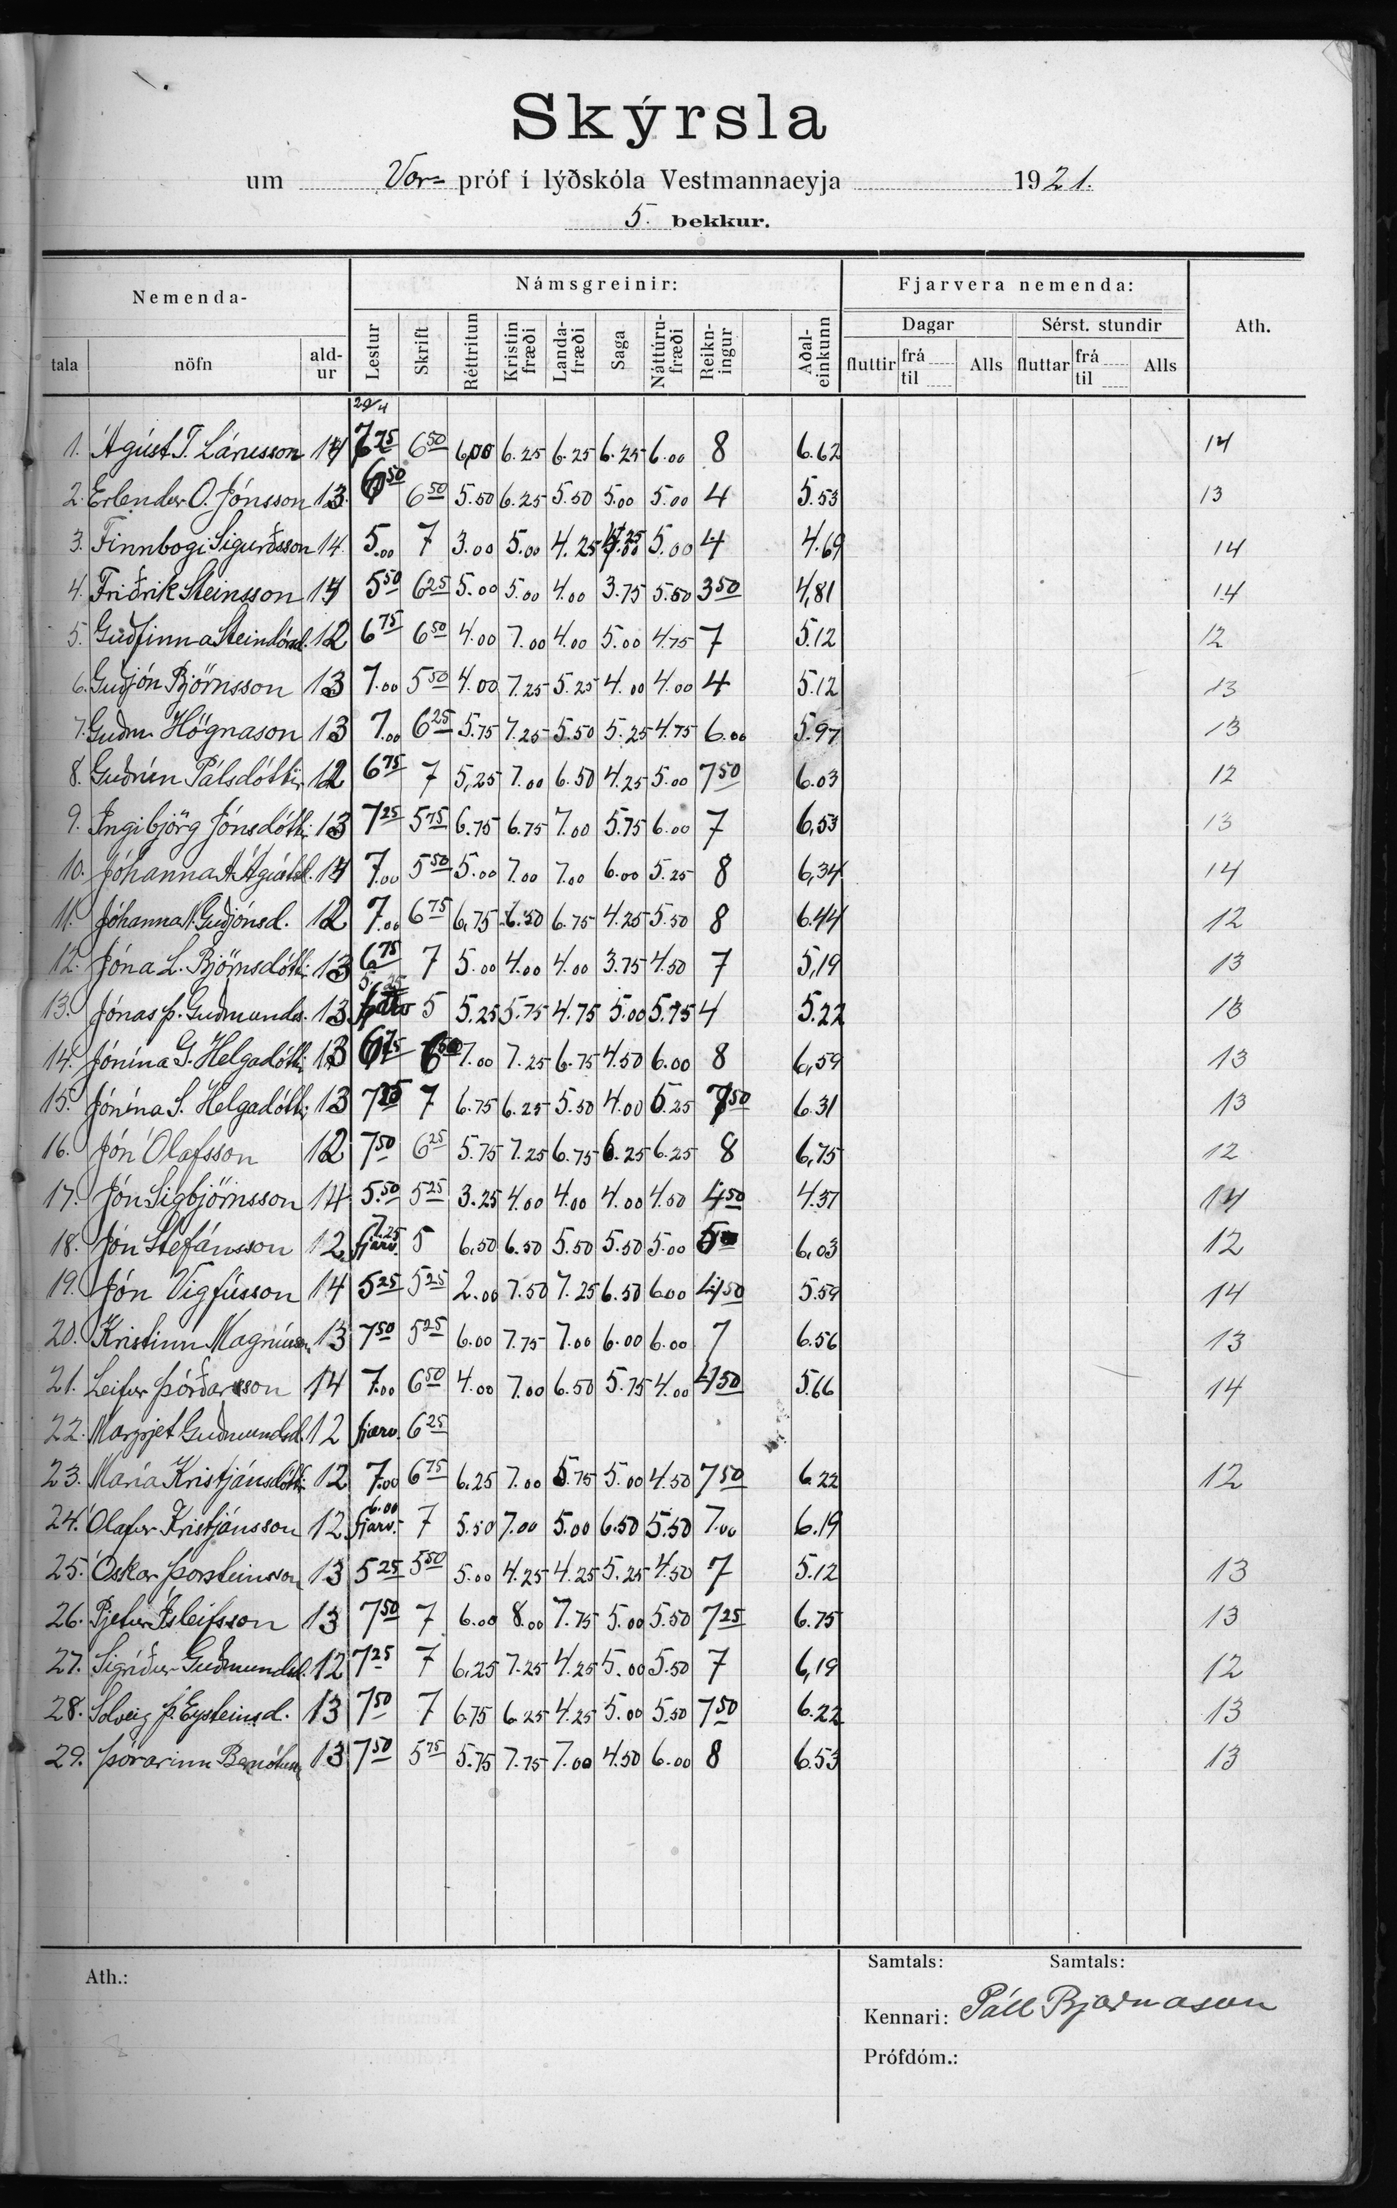 Skýrsla
um Vor- próf í lýðskóla Vestmannaeyja 1921.
5. bekkur.
Nemenda- Námsgreinir: Fjarvera nemenda: Ath.
Dagar Sérst. stundir
tala nöfn ald-ur Lestur Skrift Réttritun Kristin fræði Landa-fræði Saga Náttúru-fræði Reikn-ingur Aðal-einkunn fluttir frá til Alls fluttar frá til Alls
29/4
1. Ágúst T. Lárusson 14 7 75 6 50 6.00 6.25 6.25 6.25 6.00 8 6.62 14
2. Erlendur O. Jónsson 13 6 50 6 50 5.50 6.25 5.50 5.00 5.00 4 5.53 13
3. Finnbogi Sigurðsson 14 5.00 7 3.00 5.00 4.25 5.00 4 4.69 14
4. Friðrik Steinsson 14 5 50 6 25 5.00 5.00 4.00 3.75 5.50 3 50 4,81 14
5. Guðfinna Steindórsd. 12 6 75 6 50 4.00 7.00 4.00 5.00 4.75 7 5.12 12
6. Guðjón Björnsson 13 7.00 5 50 4.00 7.25 5.25 4.00 4.00 4 5.12 13
7. Guðm. Högnason 13 7.00 6 25 5.75 7.25 5.50 5.25 4.75 6.00 5.97 13
8. Guðrún Pálsdóttir 12 6 75 7 5,25 7.00 6.50 4.25 5.00 7 50 6.03 12
9. Ingibjörg Jónsdótti 13 7 25 5 75 6.75 6.75 7.00 5.75 6.00 7 6,53 13
10. Jóhanna Á. Ágústd. 14 7.00 5 50 5.00 7.00 7.00 6.00 5.25 8 6,34 14
11. Jóhanna N. Guðjónsd. 12 7.00 6 75 6,75 6.50 6.75 4.25 5.50 8 6.44 12
12. Jóna L. Björnsdótti 13 6 75 7 5.00 4.00 4.00 3.75 4.50 7 5,19 13
13. Jónas Þ. Guðmunds. 13 5.25 5 5.25 5.75 4.75 5.00 5.75 4 5.22 13
14. Jónína G. Helgadótti 13 6 75 6 50 7.00 7.25 6.75 4.50 6.00 8 6,59 13
15. Jónína S. Helgadótti 13 7 25 7 6.75 6.25 5.50 4.00 5.25 7 50 6.31 13
16. Jón Ólafsson 12 7 50 6 25 5.75 7.25 6.75 6.25 6.25 8 6,75 12
17. Jón Sigbjörnsson 14 5.50 5 25 3.25 4.00 4.00 4.00 4.50 4 50 4.37 14
18. Jón Stefánsson 12 7.25 fjarv. 5 6,50 6.50 5.50 5.50 5.00 5 6,03 12
19. Jón Vigfússon 14 5 25 5 25 2.00 7.50 7.25 6.50 6.00 4 50 5.59 14
20. Kristinn Magnússon 13 7 50 5 25 6.00 7.75 7.00 6.00 6.00 7 6.56 13
21. Leifur Þórðarsson 14 7.00 6 50 4.00 7.00 6.50 5.75 4.00 4 50 5.66 14
22. Margrjet Guðmundsd. 12 fjarv. 6 25
23. María Kristjánsdótti 12 7.00 6 75 6.25 7.00 5.75 5.00 4.50 7 50 6.22 12
24. Ólafur Kristjánsson 12 6.00 fjarv. 7 5.50 7.00 5.00 6.50 5.50 7.00 6.19
25. Óskar Þorsteinsson 13 5 25 5 50 5.00 4.25 4.25 5.25 4.50 7 5.12 13
26. Pjetur Ísleifsson 13 7 50 7 6.00 8.00 7.75 5.00 5.50 7 25 6.75 13
27. Sigríður Guðmundsd. 12 7 25 7 6,25 7.25 4.25 5.00 5.50 7 6,19 12
28. Solveig Þ. Eysteinsd. 13 7 50 7 6.75 6.25 4.25 5.00 5.50 7 50 6.22 13
29. Þórarinn 13 7 50 5 75 5.75 7.75 7.00 4.50 6.00 8 6.53 13
Ath.:
Samtals: Samtals:
Kennari: Páll Bjarnason
Prófdóm.: